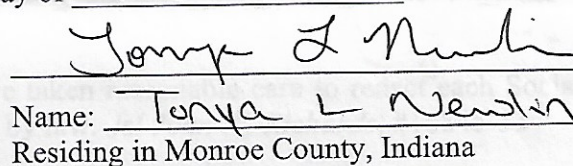 Tonya L Newlin
Name: Tonya L Newlin
Residing in Monroe County, Indiana